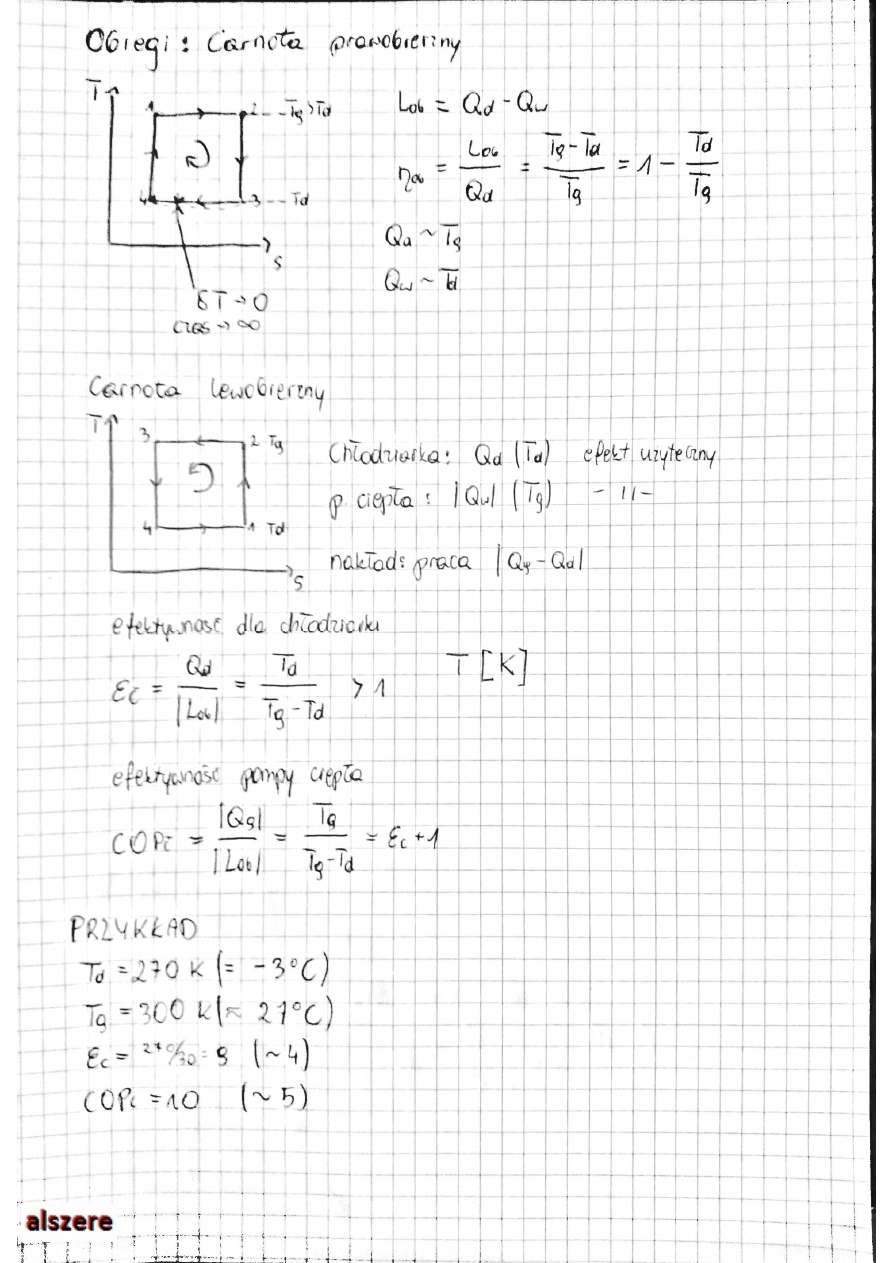 Obiegi: Carnota prawobieżny
T
1
2
Tg > Td
4
3
Td
S
δT → 0
czas → ∞
Lob = Qd - Qw
ηob = Lob / Qd = (Tg - Td) / Tg = 1 - Td / Tg
Qd ~ Tg
Qw ~ Td
Carnota lewobieżny
T
3
2 Tg
4
1 Td
S
Chłodziarka: Qd (Td) efekt użyteczny
p. ciepła: |Qw| (Tg) - 11 -
nakład: praca |Qg - Qd|
efektywność dla chłodziarki
εc = Qd / |Lob| = Td / (Tg - Td) > 1
T [K]
efektywność pompy ciepła
COPc = |Qg| / |Lob| = Tg / (Tg - Td) = εc + 1
PRZYKŁAD
Td = 270 K (= -3°C)
Tg = 300 K (≈ 27°C)
εc = 270/30 = 9 (~4)
COPc = 10 (~5)
alszere